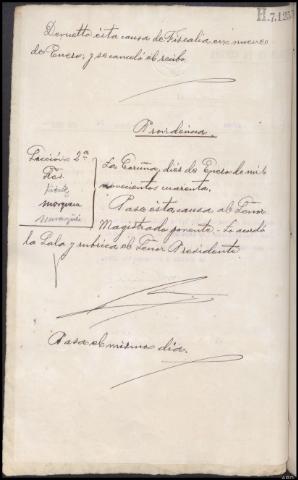 H.7.125
Devuelta esta causa de Fiscalía en nueve
de Enero, y se canceló el recibo.
Providencia.
Sección 2ª
Sres.
La Coruña, diez de Enero de mil
novecientos cuarenta.
Pase esta causa al Señor
Magistrado ponente. Lo acordó
la Sala y rubrica el Señor Presidente.
Pasa el mismo día.